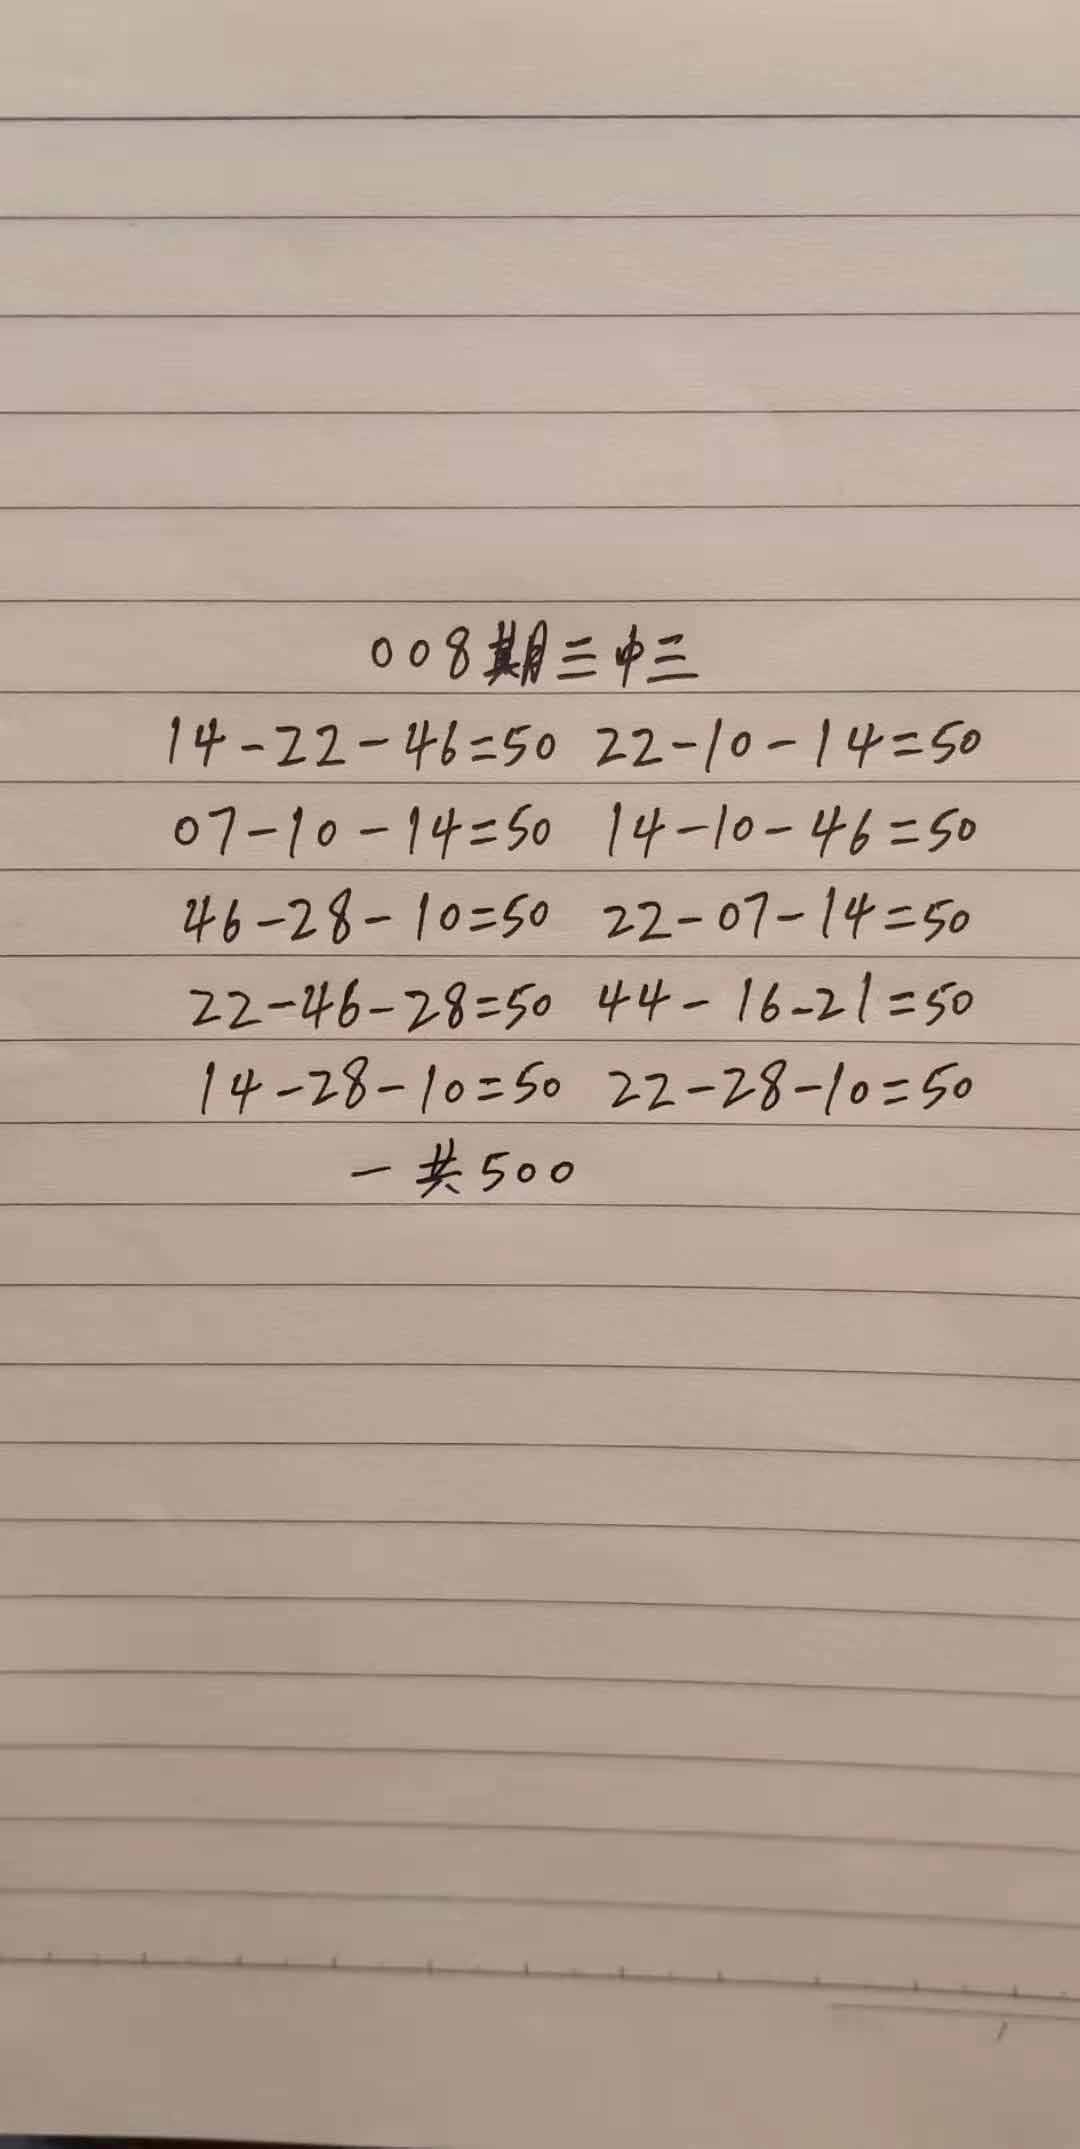 008期三中三
14-22-46=50 22-10-14=50
07-10-14=50 14-10-46=50
46-28-10=50 22-07-14=50
22-46-28=50 44-16-21=50
14-28-10=50 22-28-10=50
一共500